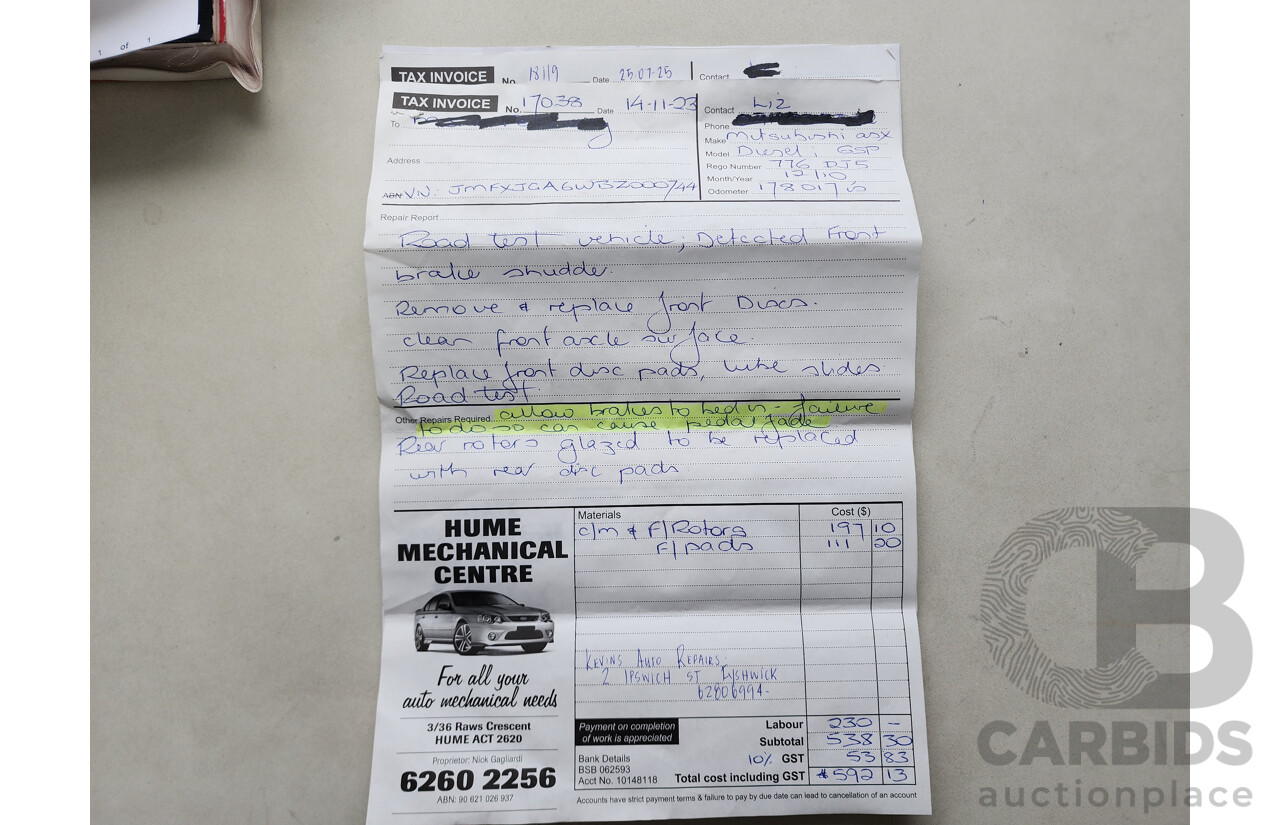 1 of 1
TAX INVOICE No. 18119 Date 25.07.25 Contact
TAX INVOICE No. 17038 Date 14-11-23
To
Address
ABN VN: JMFXJGA6WBZ000744
Contact Liz
Phone
Make Mitsubishi asx
Model Diesel; GSP
Rego Number 776 DJ5
Month/Year 12/10
Odometer 178017
Repair Report
Road test vehicle; Detected Front
brake shudder.
Remove & replace front Discs.
clean front axle surface.
Replace front disc pads, lube slides
Road test.
Other Repairs Required allow brakes to bed in - failure
to do so can cause pedal fade
Rear rotors glazed to be replaced
with rear disc pads
HUME
MECHANICAL
CENTRE
For all your
auto mechanical needs
3/36 Raws Crescent
HUME ACT 2620
Proprietor: Nick Gagliardi
6260 2256
ABN: 90 621 026 937
Materials Cost ($)
c/m & F/Rotors 197 10
F/pads 111 20
KEVINS AUTO REPAIRS
2 IPSWICH ST FYSHWICK
62806994-
Payment on completion
of work is appreciated
Labour 230 -
Subtotal 538 30
10% GST 53 83
Total cost including GST $592 13
Bank Details
BSB 062593
Acct No. 10148118
Accounts have strict payment terms & failure to pay by due date can lead to cancellation of an account
CB
CARBIDS
auctionplace